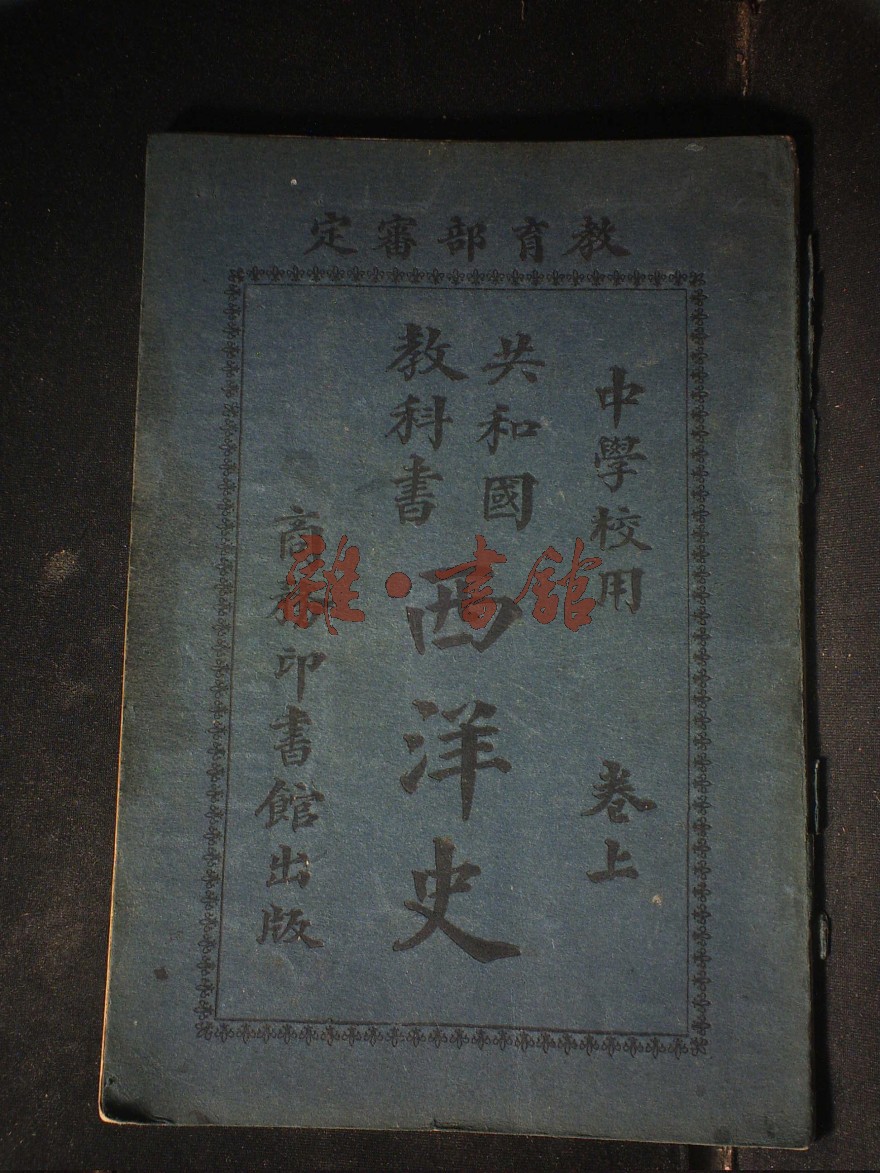 教育部審定
中學校用 卷上
共和國
教科書
西洋史
商務印書館出版
雜·書館